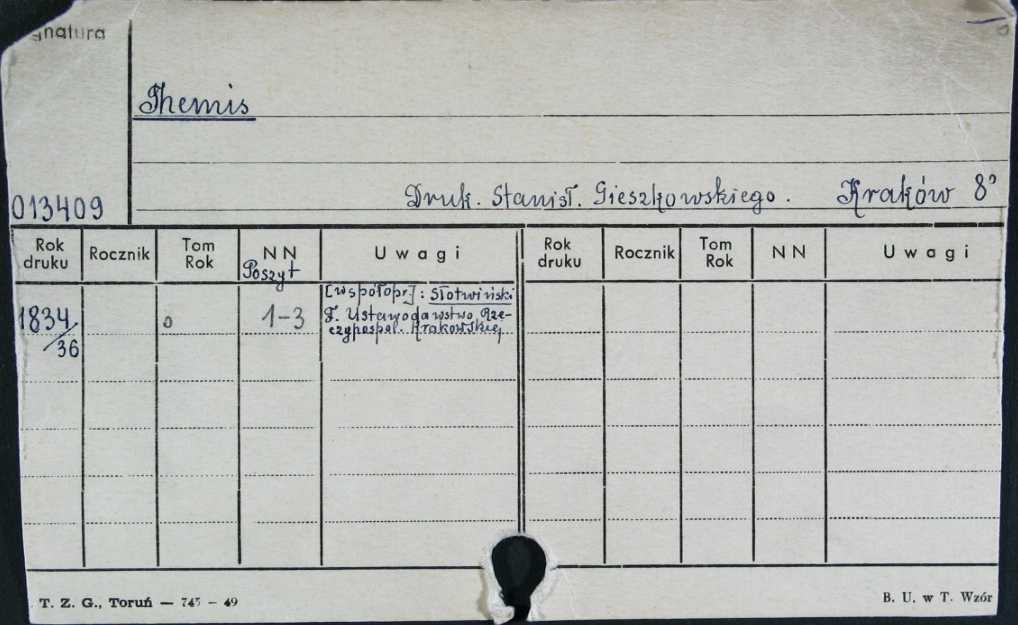 gnatura
Themis
013409
Druk. Stanisł. Gieszkowskiego. Kraków 8°
Rok druku Rocznik Tom Rok NN Poszyt Uwagi Rok druku Rocznik Tom Rok NN Uwagi
1834/36 0 1-3 [współopr]: Słotwiński
F. Ustawodawstwo Rze-
czypospol. Krakowskiej
T. Z. G., Toruń — 745 — 49 B. U. w T. Wzór